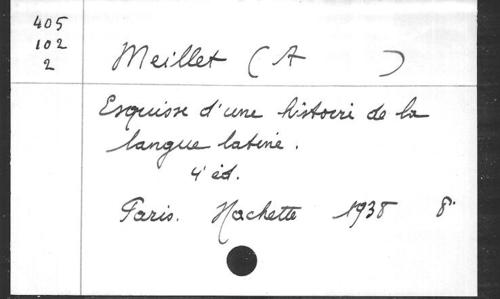 405
102
2
Meillet (A )
Esquisse d'une histoire de la
langue latine.
4' éd.
Paris. Hachette 1938 8°